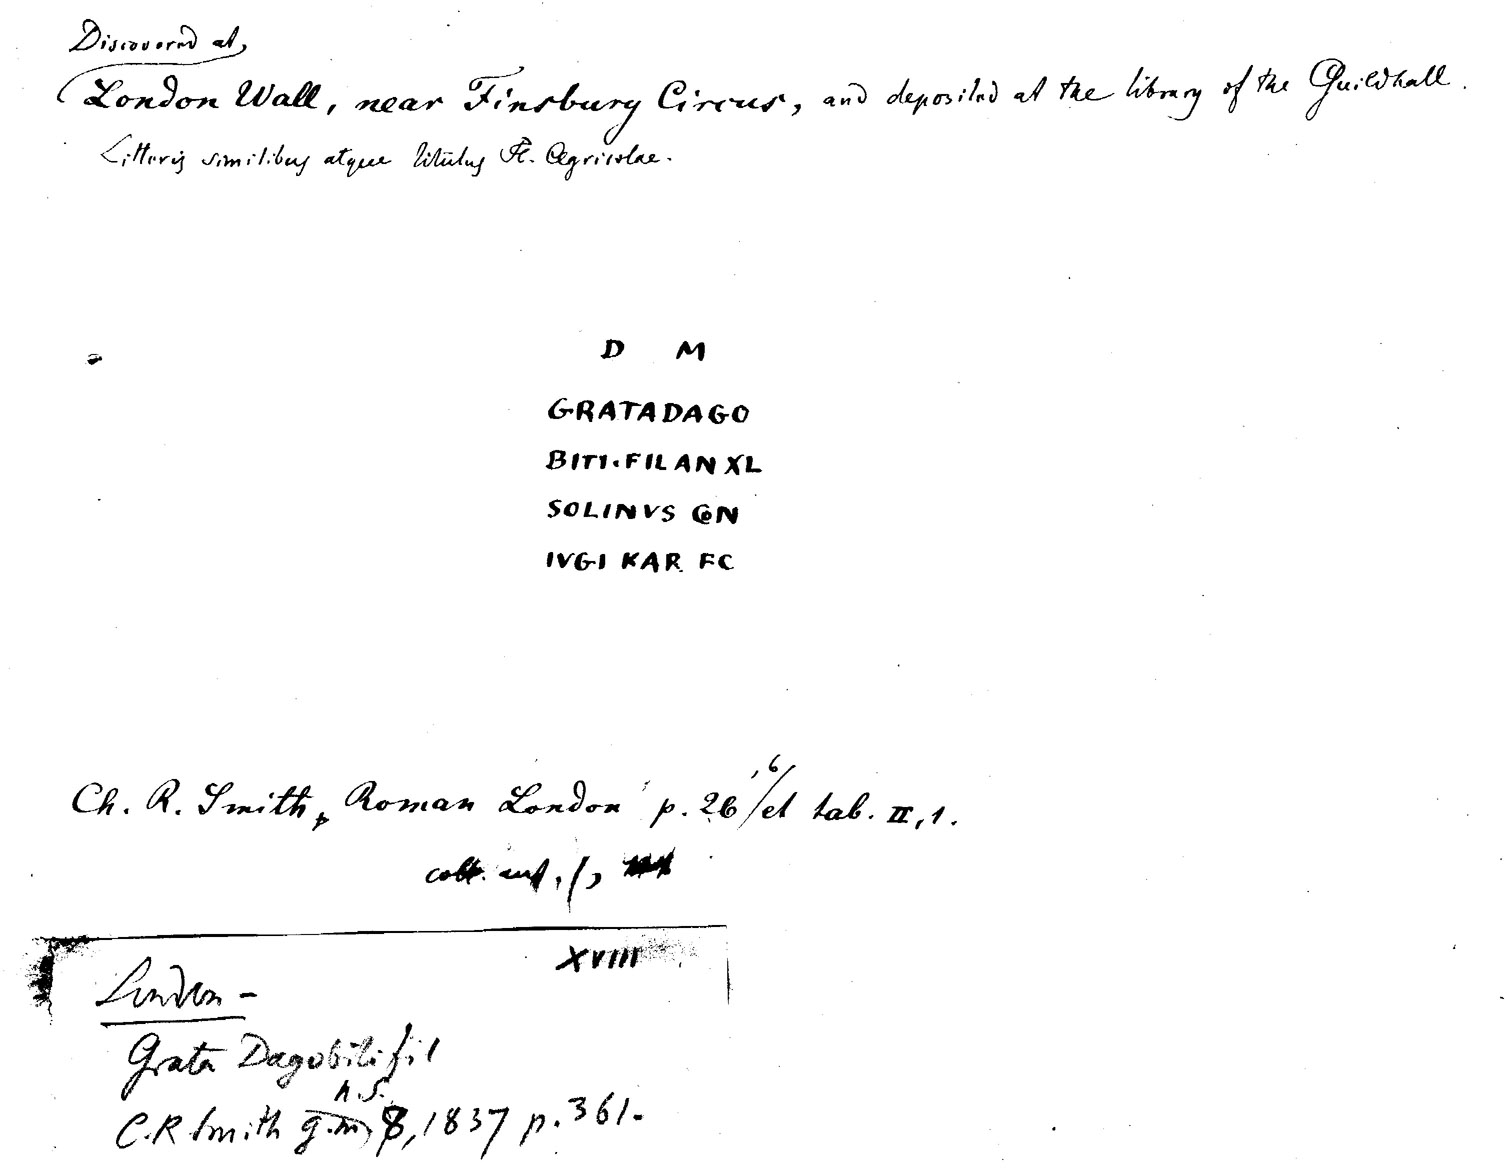 Discovered at,
London Wall, near Finsbury Circus, and deposited at the library of the Guildhall.
Litteris similibus atque titulus Fl. Agricolae.
D M
GRATADAGO
BITI·FILANXL
SOLINVS CON
IVGI KAR FC
Ch. R. Smith, Roman London p. 26, 6/et tab. II, 1.
coll. ant. 1,
XVIII
London -
Grata Dagobiti fil
n.S.
C.R Smith g.m, 8, 1837 p. 361.